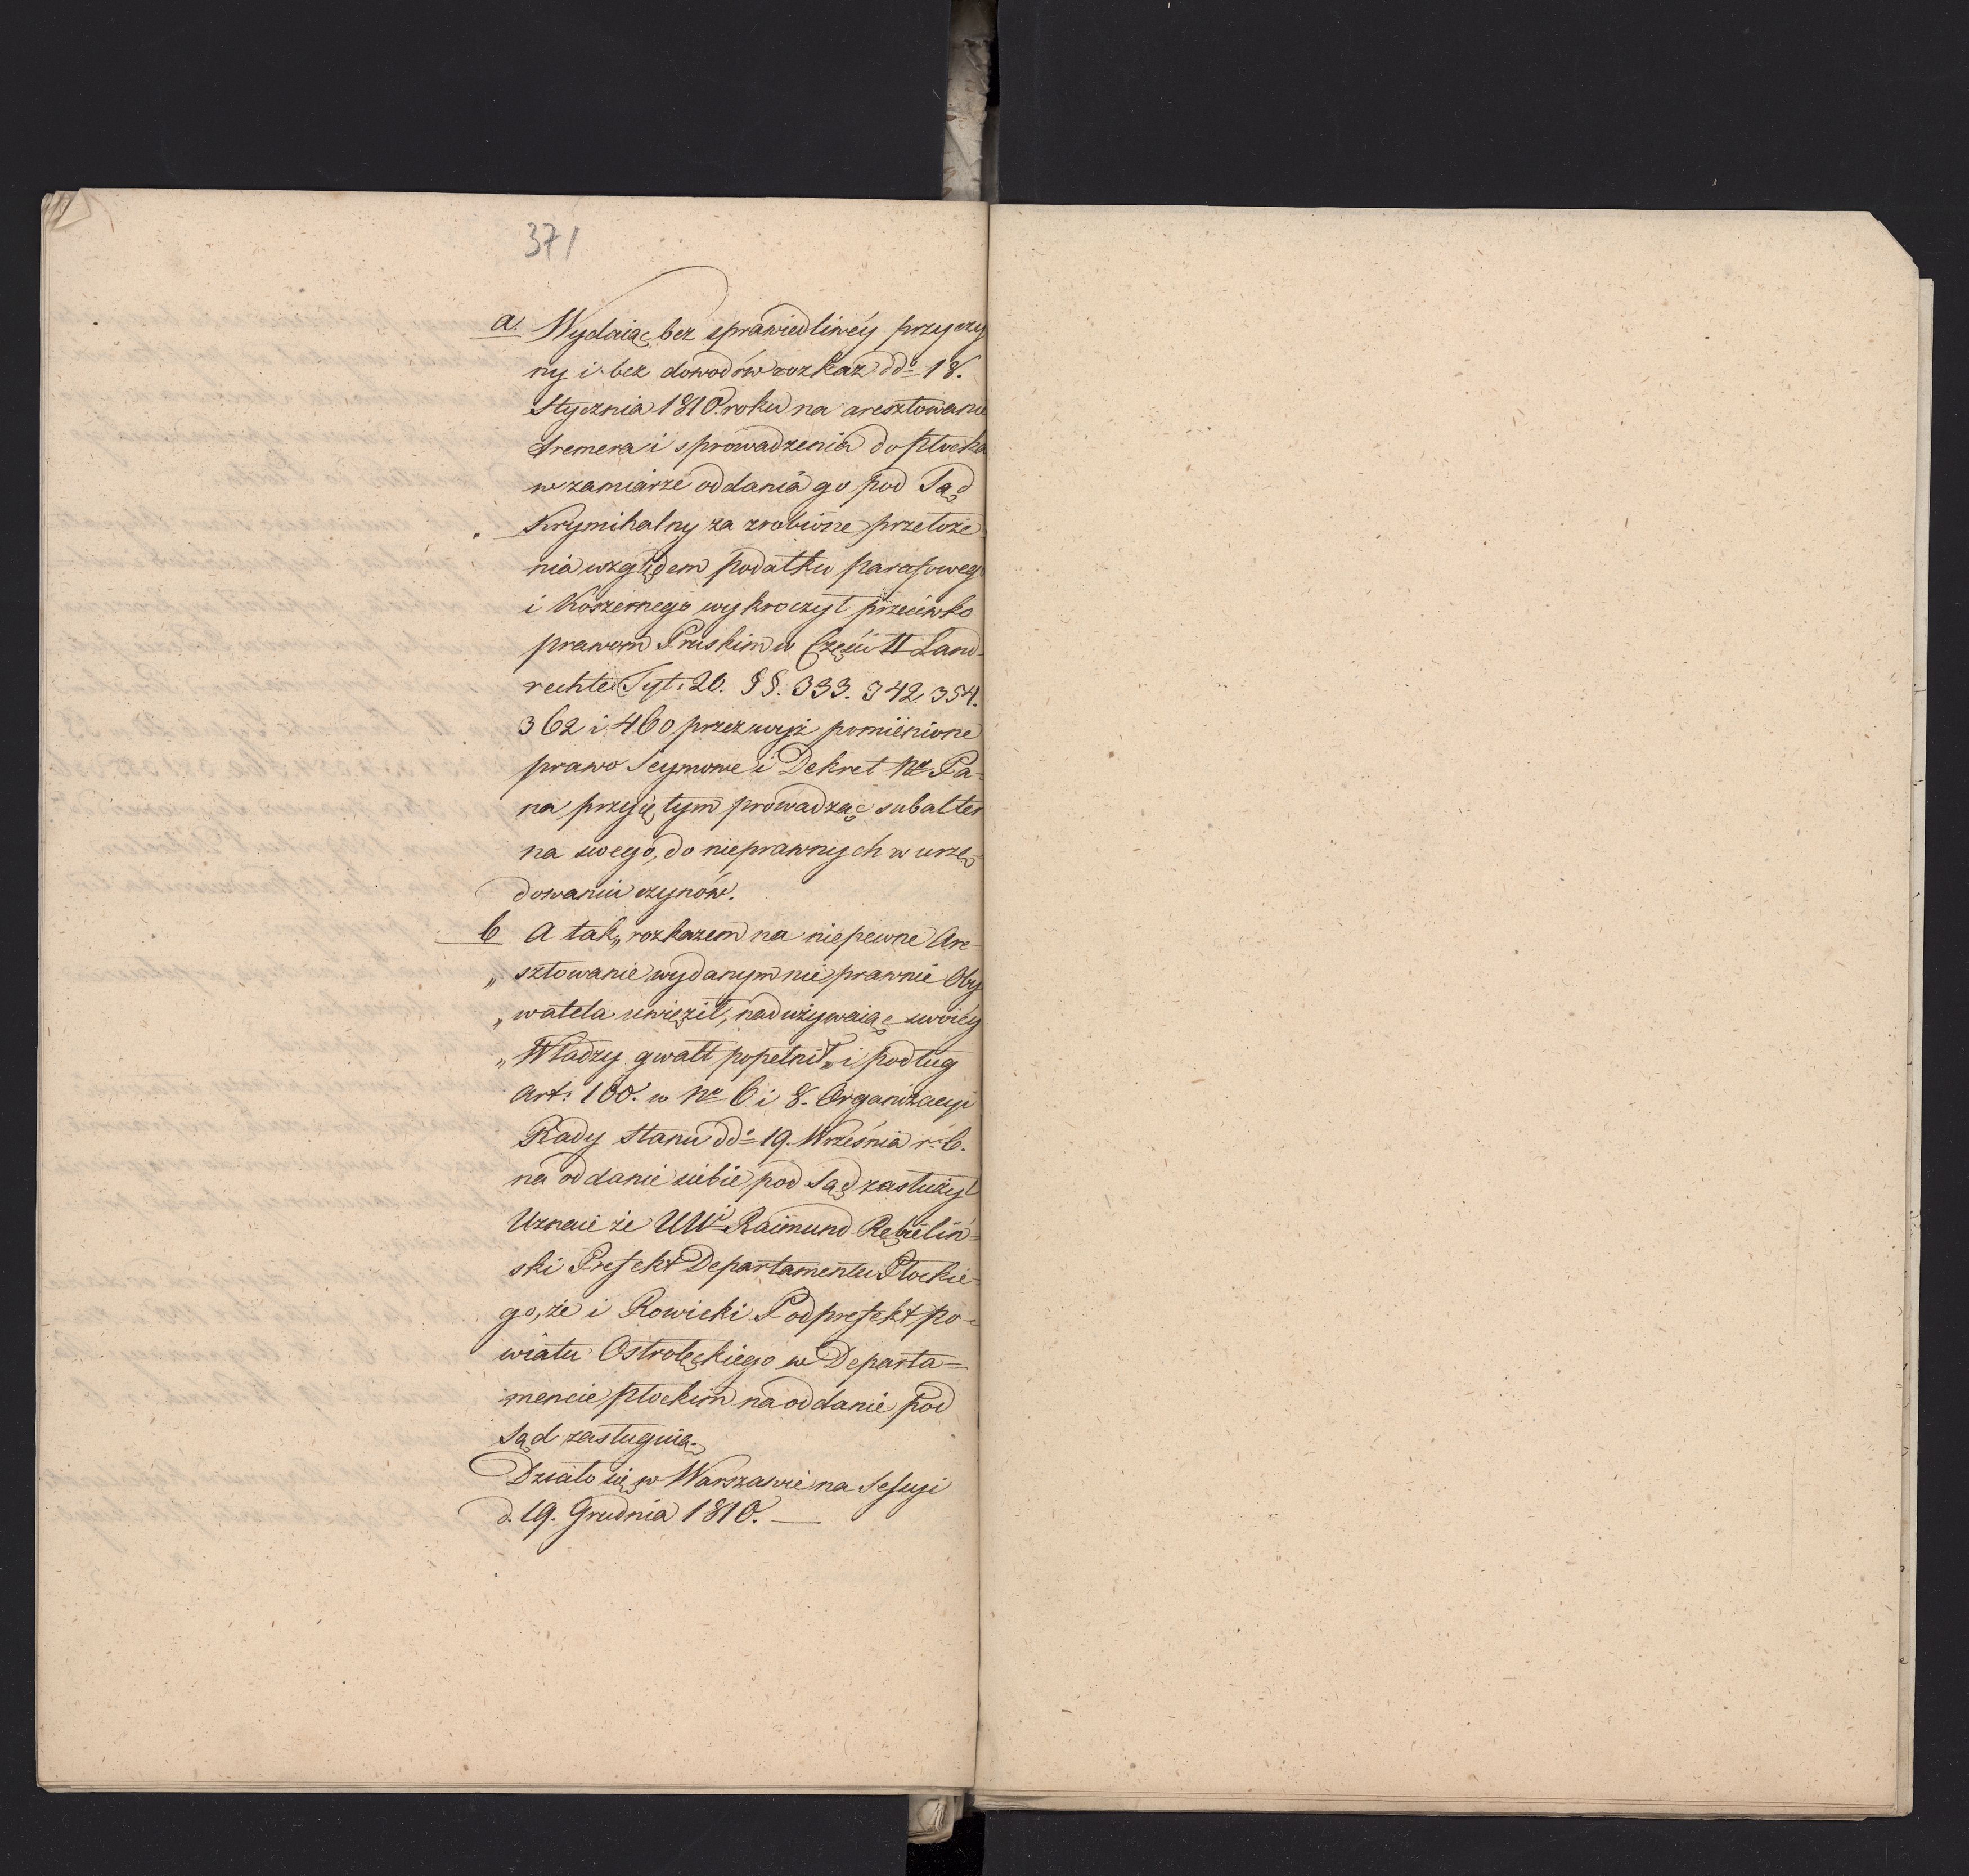 371
a. Wydaiąc bez sprawiedliwéy przyczy
ny i bez dowodów rozkaz dd° 18.
Stycznia 1810. roku na aresztowanie
Sremera i sprowadzenia do Płocka
w zamiarze oddania go pod Sąd
Kryminalny za zrobione przełoże
nia względem podatku parafowego
i Koszernego wykroczył przeciwko
prawom Pruskim w Części II Land=
rechtu Tyt: 20. §§. 333. 342. 354.
362 i 460 przez wyż pomienione
prawo Seymowe i Dekret Nr Pa=
na przyiętym prowadząc subalter
na swego, do nieprawnych w urzę=
dowaniu czynów.
b A tak „rozkazem na niepewne Are=
„sztowanie wydanym nie prawnie Oby
„watela uwięził, nadużywaiąc swoiéy
„Władzy gwałt popełnił„ i podług
Art: 100. w Nr 6 i 8. Organizacyi
Rady Stanu dd° 19. Września r. b.
na oddanie siebie pod Sąd zasłużył
Uznaie że UWi Raimund Rębieliń=
ski Prefekt Departamentu Płockie=
go, że i Rowicki Podprefekt po=
wiatu Ostrołęckiego w Departa=
mencie Płockim na oddanie pod
Sąd zasługuią.
Działo się w Warszawie na Sessyi
d. 19. Grudnia 1810. —